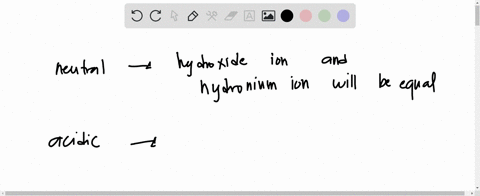 neutral → hydroxide ion and
hydronium ion will be equal
acidic →